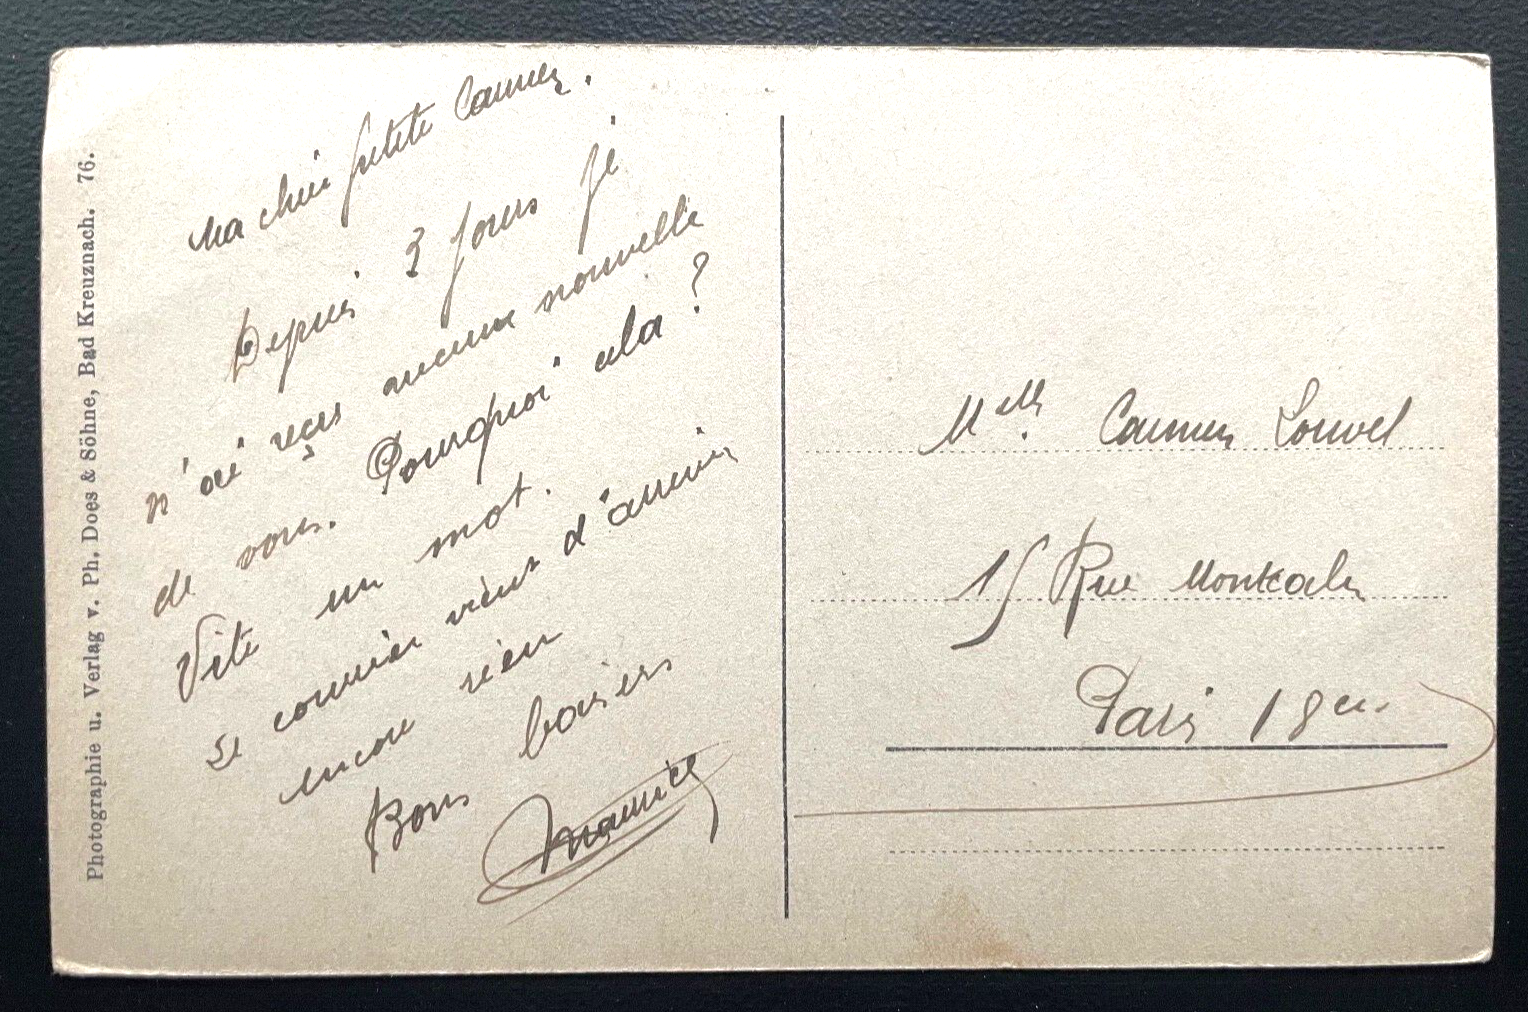 Ma chère petite Carmen.
Depuis 3 jours je
n'ai reçus aucune nouvelle
de vous. Pourquoi cela ?
Vite un mot.
Le courrier vient d'arriver
encore rien
Bons baisers
Maurice
Melle. Carmen Louvel
15 Rue Montcalm
Paris 18em
Photographie u. Verlag v. Ph. Does & Söhne, Bad Kreuznach. 76.